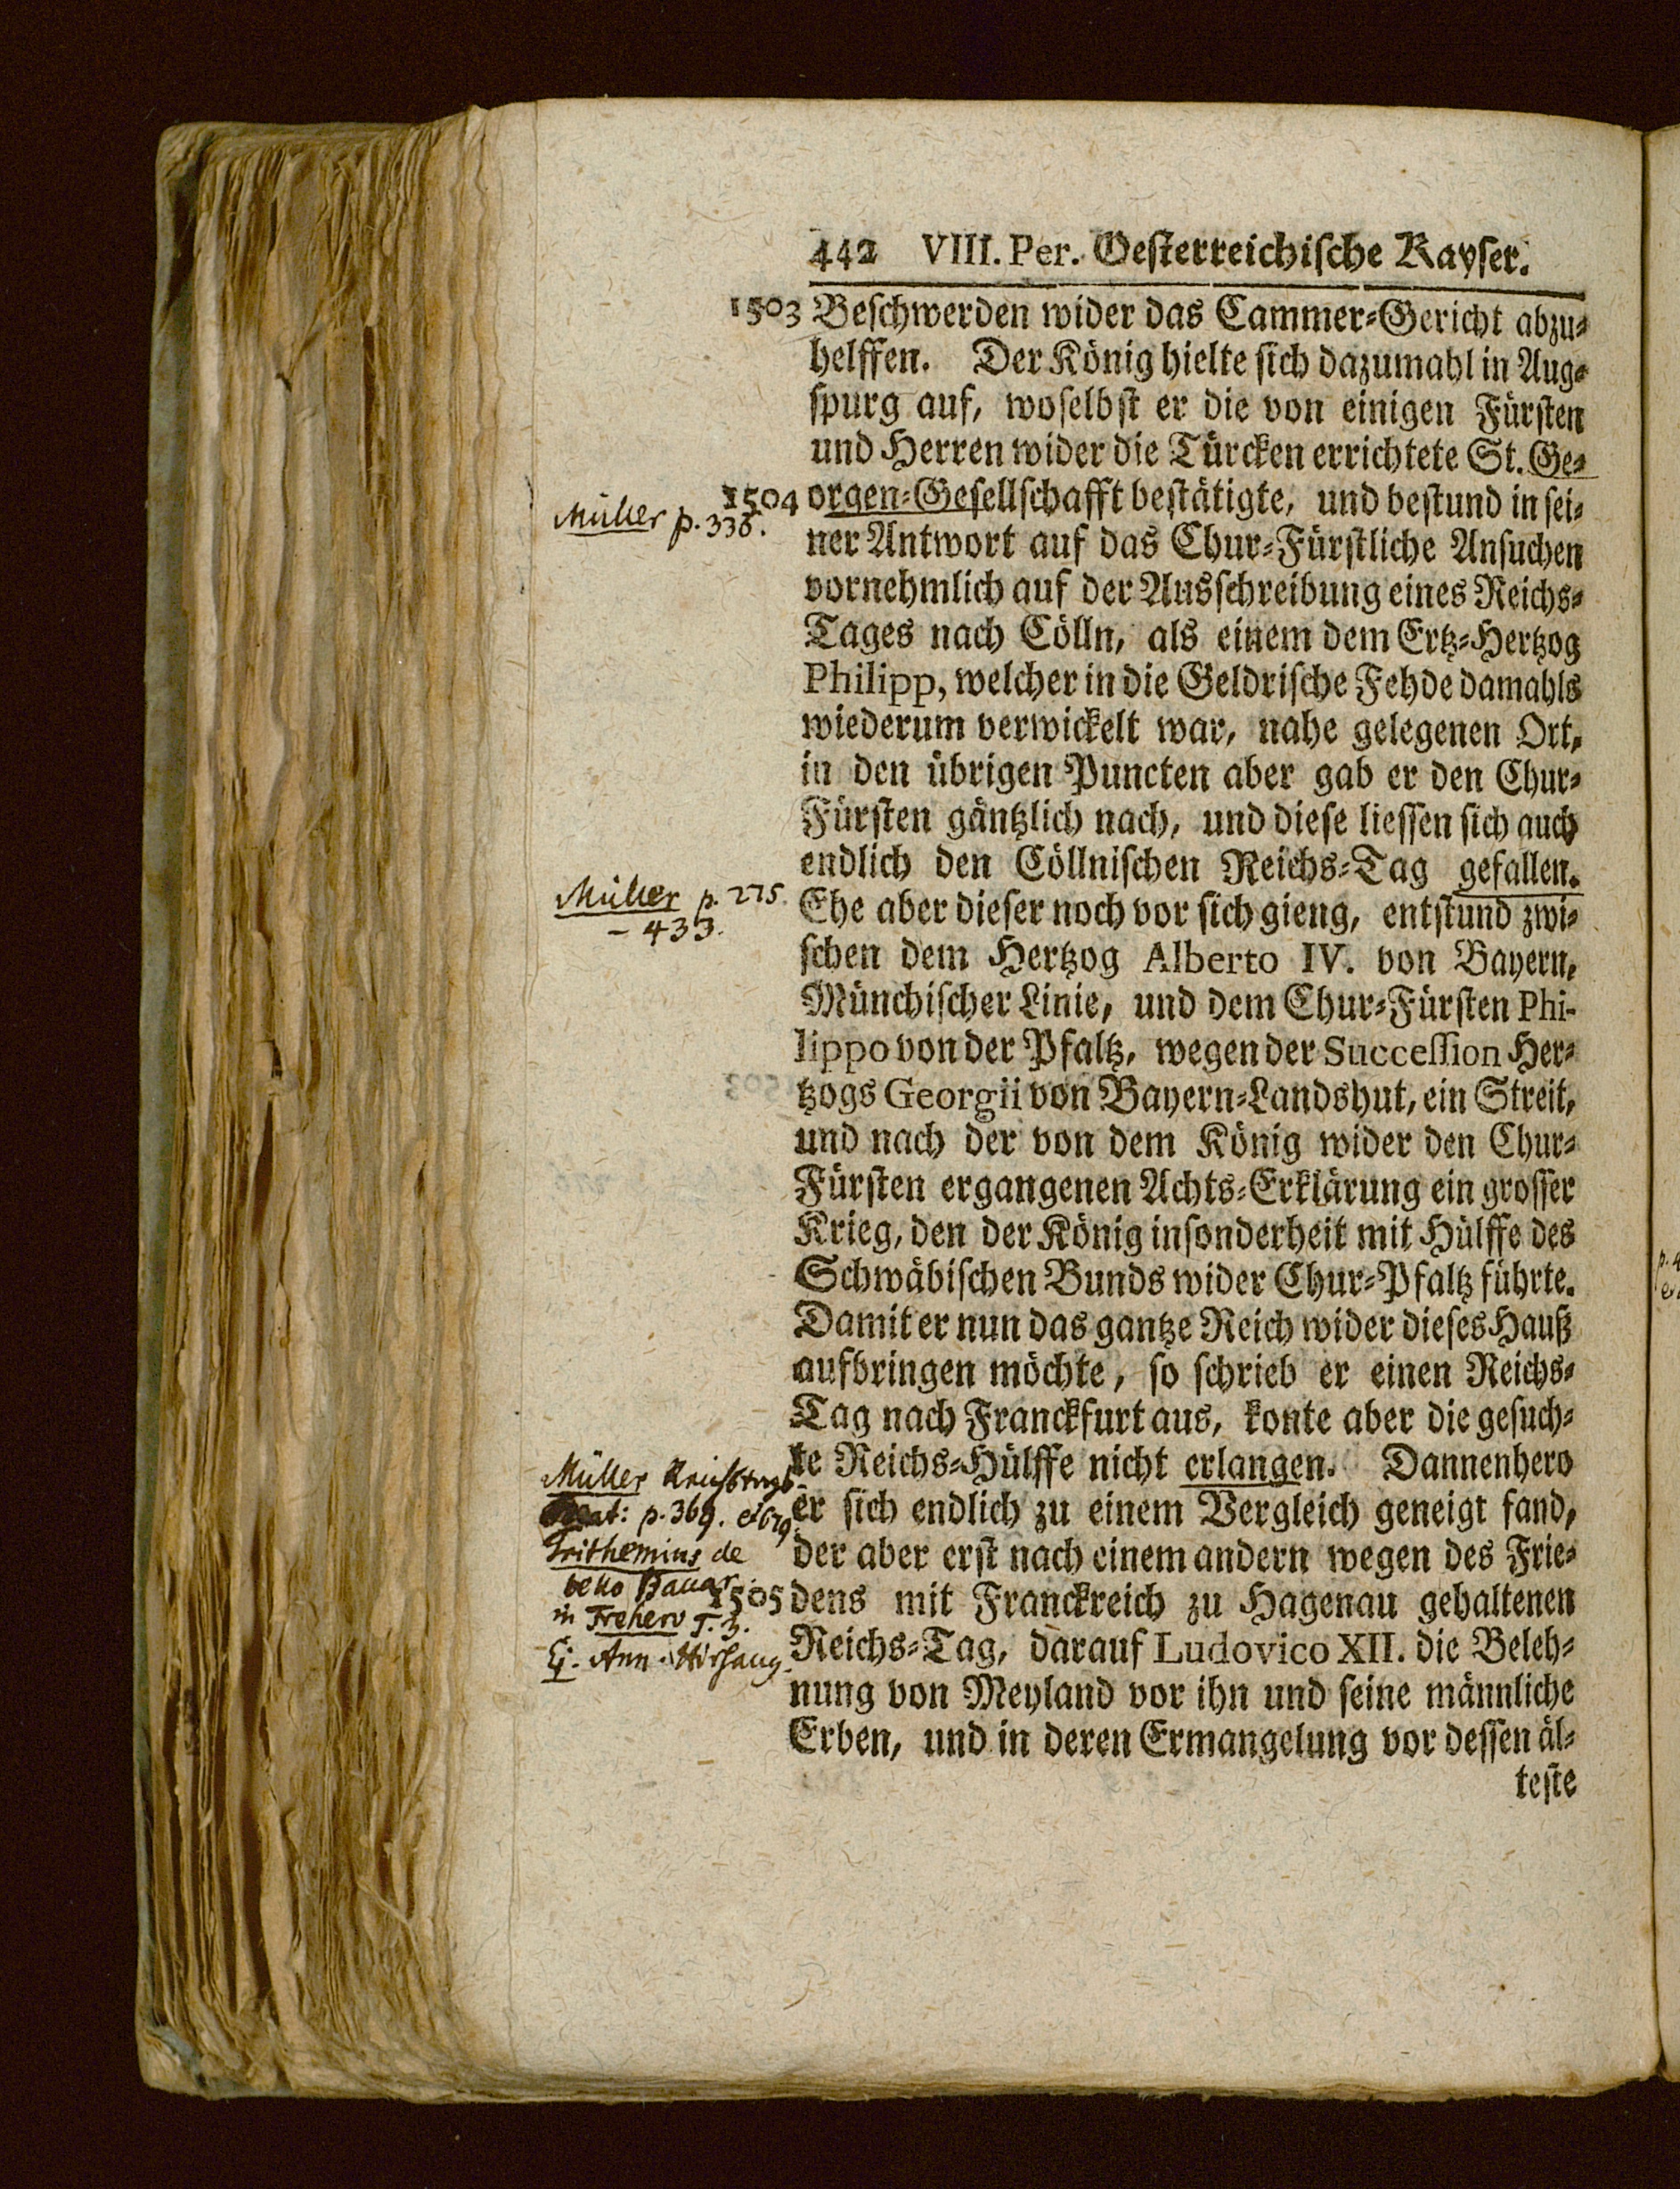 442 VIII. Per. Oesterreichische Kayser.
1503 Beschwerden wider das Cammer-Gericht abzu-
helffen. Der König hielte sich dazumahl in Aug-
spurg auf, woselbst er die von einigen Fürsten
und Herren wider die Türcken errichtete St. Ge-
1504 orgen-Gesellschafft bestätigte, und bestund in sei-
Müller p. 336.
ner Antwort auf das Chur-Fürstliche Ansuchen
vornehmlich auf der Ausschreibung eines Reichs-
Tages nach Cölln, als einem dem Ertz-Hertzog
Philipp, welcher in die Geldrische Fehde damahls
wiederum verwickelt war, nahe gelegenen Ort,
in den übrigen Puncten aber gab er den Chur-
Fürsten gäntzlich nach, und diese liessen sich auch
endlich den Cöllnischen Reichs-Tag gefallen.
Müller p. 275.
- 433.
Ehe aber dieser noch vor sich gieng, entstund zwi-
schen dem Hertzog Alberto IV. von Bayern,
Münchischer Linie, und dem Chur-Fürsten Phi-
lippo von der Pfaltz, wegen der Succession Her-
tzogs Georgii von Bayern-Landshut, ein Streit,
und nach der von dem König wider den Chur-
Fürsten ergangenen Achts-Erklärung ein grosser
Krieg, den der König insonderheit mit Hülffe des
Schwäbischen Bunds wider Chur-Pfaltz führte.
Damit er nun das gantze Reich wider dieses Hauß
aufbringen möchte, so schrieb er einen Reichs-
Tag nach Franckfurt aus, konte aber die gesuch-
te Reichs-Hülffe nicht erlangen. Dannenhero
er sich endlich zu einem Vergleich geneigt fand,
der aber erst nach einem andern wegen des Frie-
1505 dens mit Franckreich zu Hagenau gehaltenen
Reichs-Tag, darauf Ludovico XII. die Beleh-
nung von Meyland vor ihn und seine männliche
Erben, und in deren Ermangelung vor dessen äl-
teste
Müller Reichstags
p. 369. et 679.
Trithemius de
bello Bavar.
in Frehero T. 3.
Ej. Ann. Hirsaug.